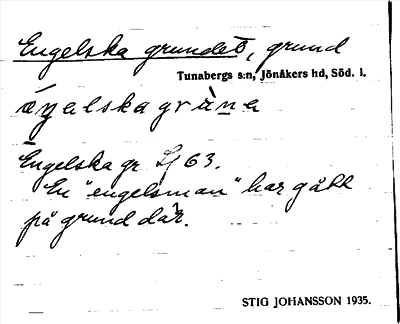 Engelska grundet, grund
Tunabergs s:n, Jönåkers hd, Söd. l.
ä́ŋalskagrùna
Engelska gr Sj 63.
En "engelsman" har gått
på grund där.
STIG JOHANSSON 1935.